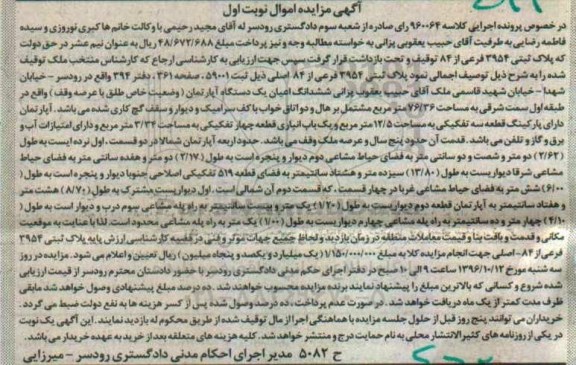 آگهی مزایده اموال نوبت اول
در خصوص پرونده اجرایی کلاسه ۹۶۰۰۶۴ رای صادره از شعبه سوم دادگستری رودسر له آقای مجید رحیمی با وکالت خانم ها کبری نوروزی و سیده
فاطمه رضایی به طرفیت آقای حبیب یعقوبی پزانی به خواسته مطالبه وجه و نیز پرداخت مبلغ ۴۸/۶۷۲/۶۸۸ ریال به عنوان نیم عشر در حق دولت
که پلاک ثبتی ۳۹۵۴ فرعی از ۸۴ توقیف و تحت بازداشت قرار گرفت سپس جهت ارزیابی به کارشناسی ارجاع که کارشناس منتخب ملک توقیف
شده را به شرح ذیل توصیف اجمالی نمود پلاک ثبتی ۳۹۵۴ فرعی از ۸۴ اصلی ذیل ثبت ۵۹۰۰۱، صفحه ۳۶۱، دفتر ۳۹۴ واقع در رودسر - خیابان
شهدا - خیابان شهید قاسمی ملک آقای حبیب یعقوبی پزانی ششدانگ اعیان یک دستگاه آپارتمان (وضعیت خاص طلق با عرصه وقف) واقع در
طبقه اول سمت شرقی به مساحت ۷۶/۳۶ متر مربع مشتمل بر هال و دو اتاق خواب با کف سرامیک و دیوار و سقف گچ کاری شده می باشد. آپارتمان
دارای پارکینگ قطعه سه تفکیکی به مساحت ۱۲/۵ متر مربع و یک باب انباری قطعه چهار تفکیکی به مساحت ۳/۳۲ متر مربع و دارای امتیازات آب و
برق و گاز و تلفن می باشد. قدمت آن حدود پنج سال و عرصه ملک وقف می باشد. حدود اربعه آپارتمان شمالا در دو قسمت، اول نرده ایست به طول
(۲/۶۲) دو متر و شصت و دو سانتی متر به فضای حیاط مشاعی دوم دیوار و پنجره است به طول (۲/۱۷) دو متر و هفده سانتی متر به فضای حیاط
مشاعی شرقا دیواریست به طول (۱۳/۸۰) سیزده متر و هشتاد سانتیمتر به فضای قطعه ۵۱۹ تفکیکی اصلاحی جنوبا دیوار و پنجره است به طول
(۶/۰۰) شش متر به فضای حیاط مشاعی غربا در چهار قسمت، که قسمت دوم آن شمالی است. اول دیواریست مشترک به طول (۸/۷۰) هشت متر
و هفتاد سانتیمتر به آپارتمان قطعه دوم دیواریست به طول (۱/۲۰) یک متر و بیست سانتیمتر به راه پله مشاعی سوم درب و دیوار است به طول
(۴/۱۰) چهار متر و ده سانتیمتر به راه پله مشاعی چهارم دیواریست به طول (۱/۰۰) یک متر به راه پله مشاعی محدود است. لذا با عنایت به موقعیت
مکانی و قدمت و بافت بنا و قیمت معاملات منطقه در زمان بازدید و لحاظ جمیع جهات موثر و فنی در قضیه کارشناسی ارزش پایه پلاک ثبتی ۳۹۵۴
فرعی از ۸۴ - اصلی جهت انجام مزایده کلا به مبلغ ۱/۱۵۰/۰۰۰/۰۰۰ (یک میلیارد و یکصد و پنجاه میلیون) ریال تعیین و اعلام می شود. مزایده در روز
سه شنبه مورخ ۱۳۹۶/۱۰/۱۲ از ساعت ۹ الی ۱۰ صبح در دفتر اجرای حکم مدنی دادگستری رودسر با حضور دادستان محترم رودسر از قیمت ارزیابی
شده شروع و کسانی که بالاترین مبلغ را پیشنهاد نمایند برنده مزایده محسوب خواهند شد. ده درصد مبلغ پیشنهادی وصول خواهد شد مابقی
ظرف مدت کمتر از یک ماه دریافت خواهد شد. در صورت عدم پرداخت، ده درصد وصول شده پس از کسر هزینه ها به نفع دولت ضبط می گردد.
خریداران می توانند پنج روز قبل از حلول جلسه مزایده با هماهنگی اجرا از مال توقیف شده از طریق محکوم له بازدید نمایند. این آگهی یک نوبت
در یکی از روزنامه های کثیرالانتشار محلی به نام حمایت درج و منتشر خواهد شد. کلیه هزینه های متعلقه بعد از خرید به عهده خریدار می باشد.
ح ۵۰۸۲ مدیر اجرای احکام مدنی دادگستری رودسر - میرزایی